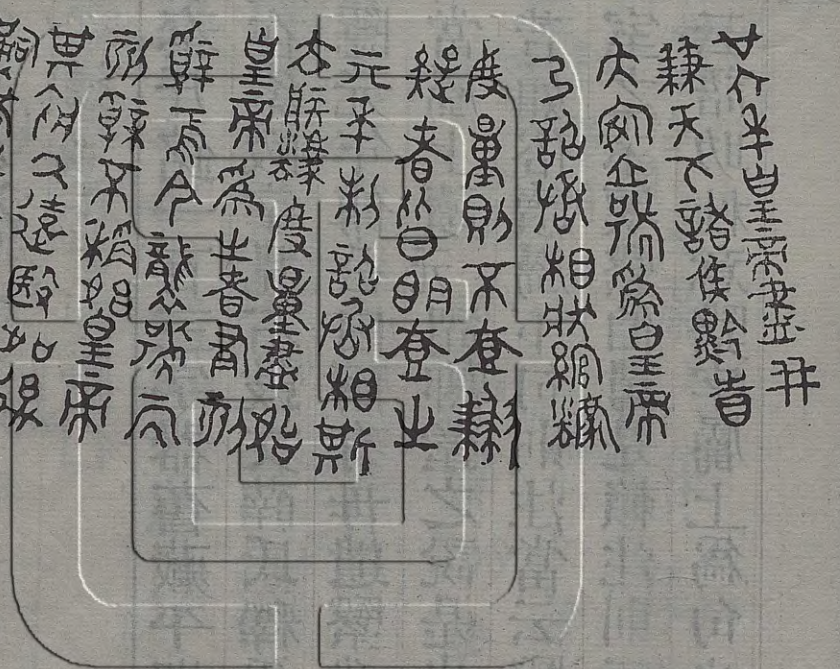 廿六年皇帝盡并
兼天下諸侯黔首
大安立號為皇帝
乃詔丞相狀綰灋
度量則不壹歉
疑者皆明壹之
元年制詔丞相斯
去疾灋度量盡始
皇帝為之皆有刻
辭焉今襲號而
刻辭不稱始皇帝
其於久遠殹如後
嗣